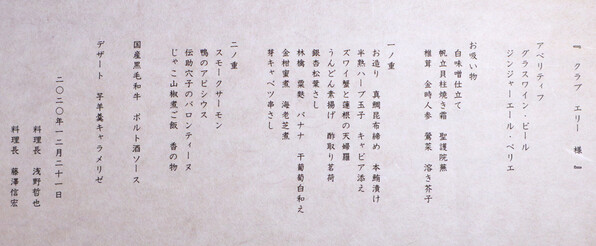 『 クラブ エリー 様 』
アペリティフ
グラスワイン・ビール
ジンジャーエール・ペリエ
お吸い物
白味噌仕立て
帆立貝柱焼き霜 聖護院蕪
椎茸 金時人参 鶯菜 溶き芥子
一ノ重
お造り 真鯛昆布締め 本鮪漬け
半熟ハーブ玉子 キャビア添え
ズワイ蟹と蓮根の天婦羅
うんどん素揚げ 酢取り茗荷
銀杏松葉さし
林檎 粟麩 バナナ 干葡萄白和え
金柑蜜煮 海老芝煮
芽キャベツ串さし
二ノ重
スモークサーモン
鴨のアピシウス
伝助穴子のバロンティーヌ
じゃこ山椒煮ご飯 香の物
国産黒毛和牛 ポルト酒ソース
デザート 芋羊羹キャラメリゼ
二〇二〇年一二月二十一日
料理長 浅野哲也
料理長 藤澤信宏